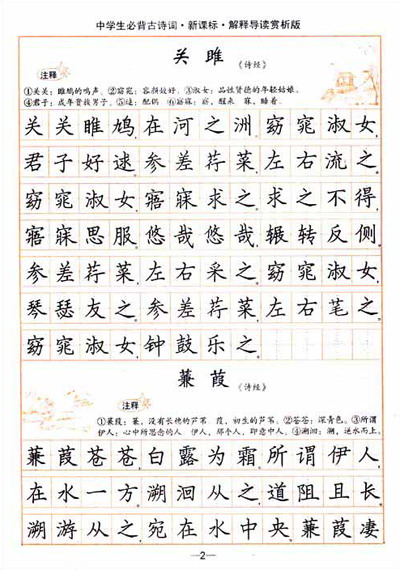 中学生必背古诗词·新课标·解释导读赏析版
关雎 《诗经》
注释
①关关：雎鸠的鸣声。②窈窕：容颜姣好。③淑女：品性贤德的年轻姑娘。
④君子：成年贵族男子。⑤逑：配偶 ⑥寤寐：寤，醒来 寐，睡着。
关关雎鸠在河之洲，窈窕淑女，
君子好逑。参差荇菜，左右流之。
窈窕淑女，寤寐求之。求之不得，
寤寐思服。悠哉悠哉，辗转反侧。
参差荇菜，左右采之。窈窕淑女，
琴瑟友之。参差荇菜，左右芼之。
窈窕淑女，钟鼓乐之。
蒹葭 《诗经》
注释
①蒹葭：蒹，没有长穗的芦苇 葭，初生的芦苇。②苍苍：深青色。③所谓
伊人：心中所思念的人 伊人，那个人，即意中人。④溯洄：溯，逆水而上。
蒹葭苍苍，白露为霜，所谓伊人，
在水一方。溯洄从之，道阻且长，
溯游从之，宛在水中央。蒹葭凄
—2—